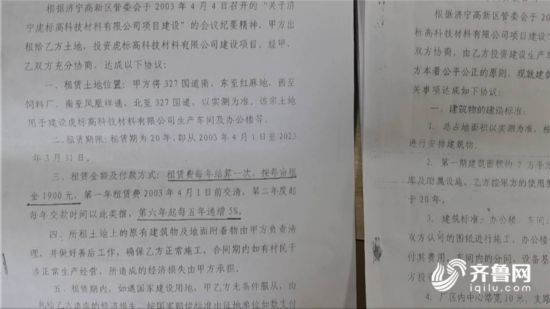 根据济宁高新区管委会于2003年4月4日召开的“关于济
宁虎标高科技材料有限公司项目建设”的会议纪要精神，甲方出
租给乙方土地，投资虎标高科技材料有限公司建设项目，经甲、
乙双方充分协商，达成以下协议：
一、租赁土地位置：甲方将327国道南，东至红麻地，西至
饲料厂，南至凤凰祥通，北至327国道，以实测为准，该宗土地
用于建设虎标高科技材料有限公司生产车间及办公楼等。
二、租赁期限：租赁期为20年，即从2003年4月1日至2023
年3月31日。
三、租赁金额及付款方式：租赁费每年结算一次，按每亩租
金1900元，第一年租赁费2003年4月1日前交清，第二年度起
每年交款时间以此类推，第六年起每五年递增5%。
四、所租土地上的原有建筑物及地面附着物由甲方负责清
理，并做好善后工作，确保乙方正常施工，合同期内如有村民干
涉正常生产经营，所造成的经济损失由甲方承担。
五、租赁期内，如遇国家建设用地，甲乙方无条件服从，由
根据济宁高新区管委
双方协商，由乙方投资建设生产
方本着公平公正的原则，现就建
关事项达成如下协议：
一、建筑物的建造标准：
1. 总占地面积以实测为准，
进行安排建筑物。
2. 第一期建筑面积约2万平
库及附属设施，乙方按张方的使用
于20年。
3. 建筑标准：办公楼、车间
双方认可的图纸进行施工，办公楼
付其费用，车间内的分间、设备基
方投
4. 厂区内中心路宽10米，支路
齐鲁网